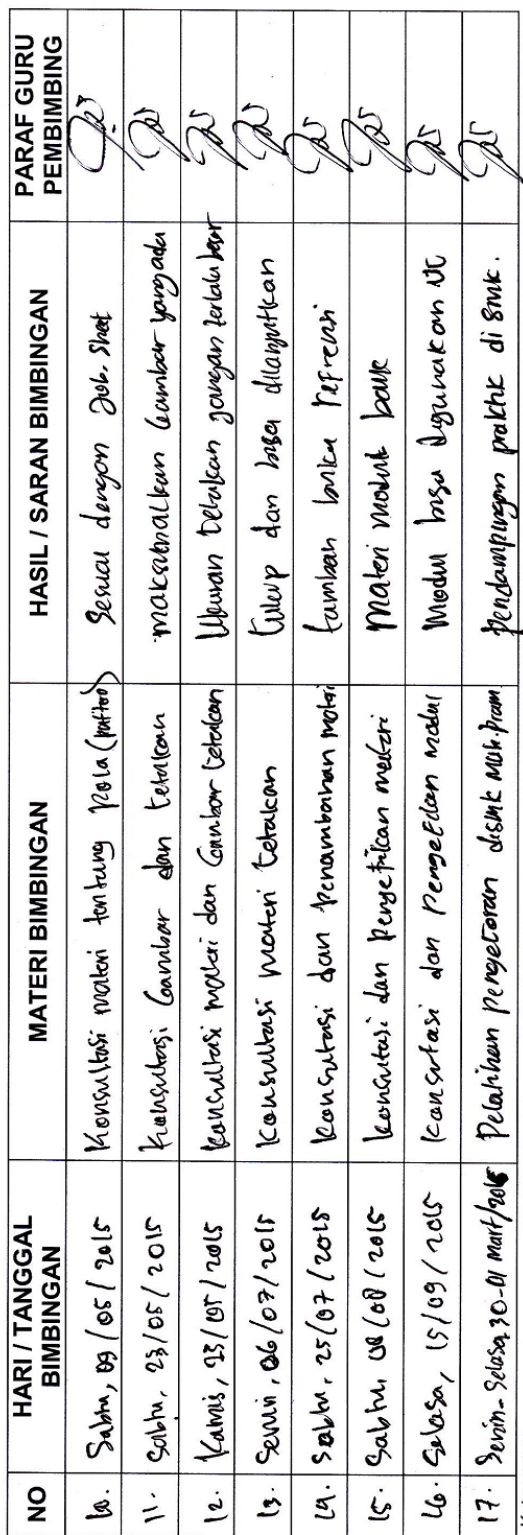 NO HARI / TANGGAL BIMBINGAN MATERI BIMBINGAN HASIL / SARAN BIMBINGAN PARAF GURU PEMBIMBING
10. Sabtu, 09/05/2015 Konsultasi materi tentang Pola Sesuai dengan Job. Sheet
11. Sabtu, 23/05/2015 Konsultasi Gambar dan Cetakan maksimalkan Gambar yang ada
12. Kamis, /2015 Konsultasi materi dan Gambar Cetakan Ukuran Cetakan jangan terlalu besar
13. Senin, 06/07/2015 Konsultasi materi Cetakan Cukup dan bisa dilanjutkan
14. Sabtu, 25/07/2015 Konsultasi dan penambahan materi tambah buku refrensi
15. Sabtu, 08/08/2015 konsultasi dan materi Materi modul baik
16. Selasa, 15/09/2015 Konsultasi dan modul Modul bisa digunakan
17. Senin-Selasa, 30-01 Mart/ Pelatihan Pengecoran Muh. Pram. Pendampingan praktik di SMK.